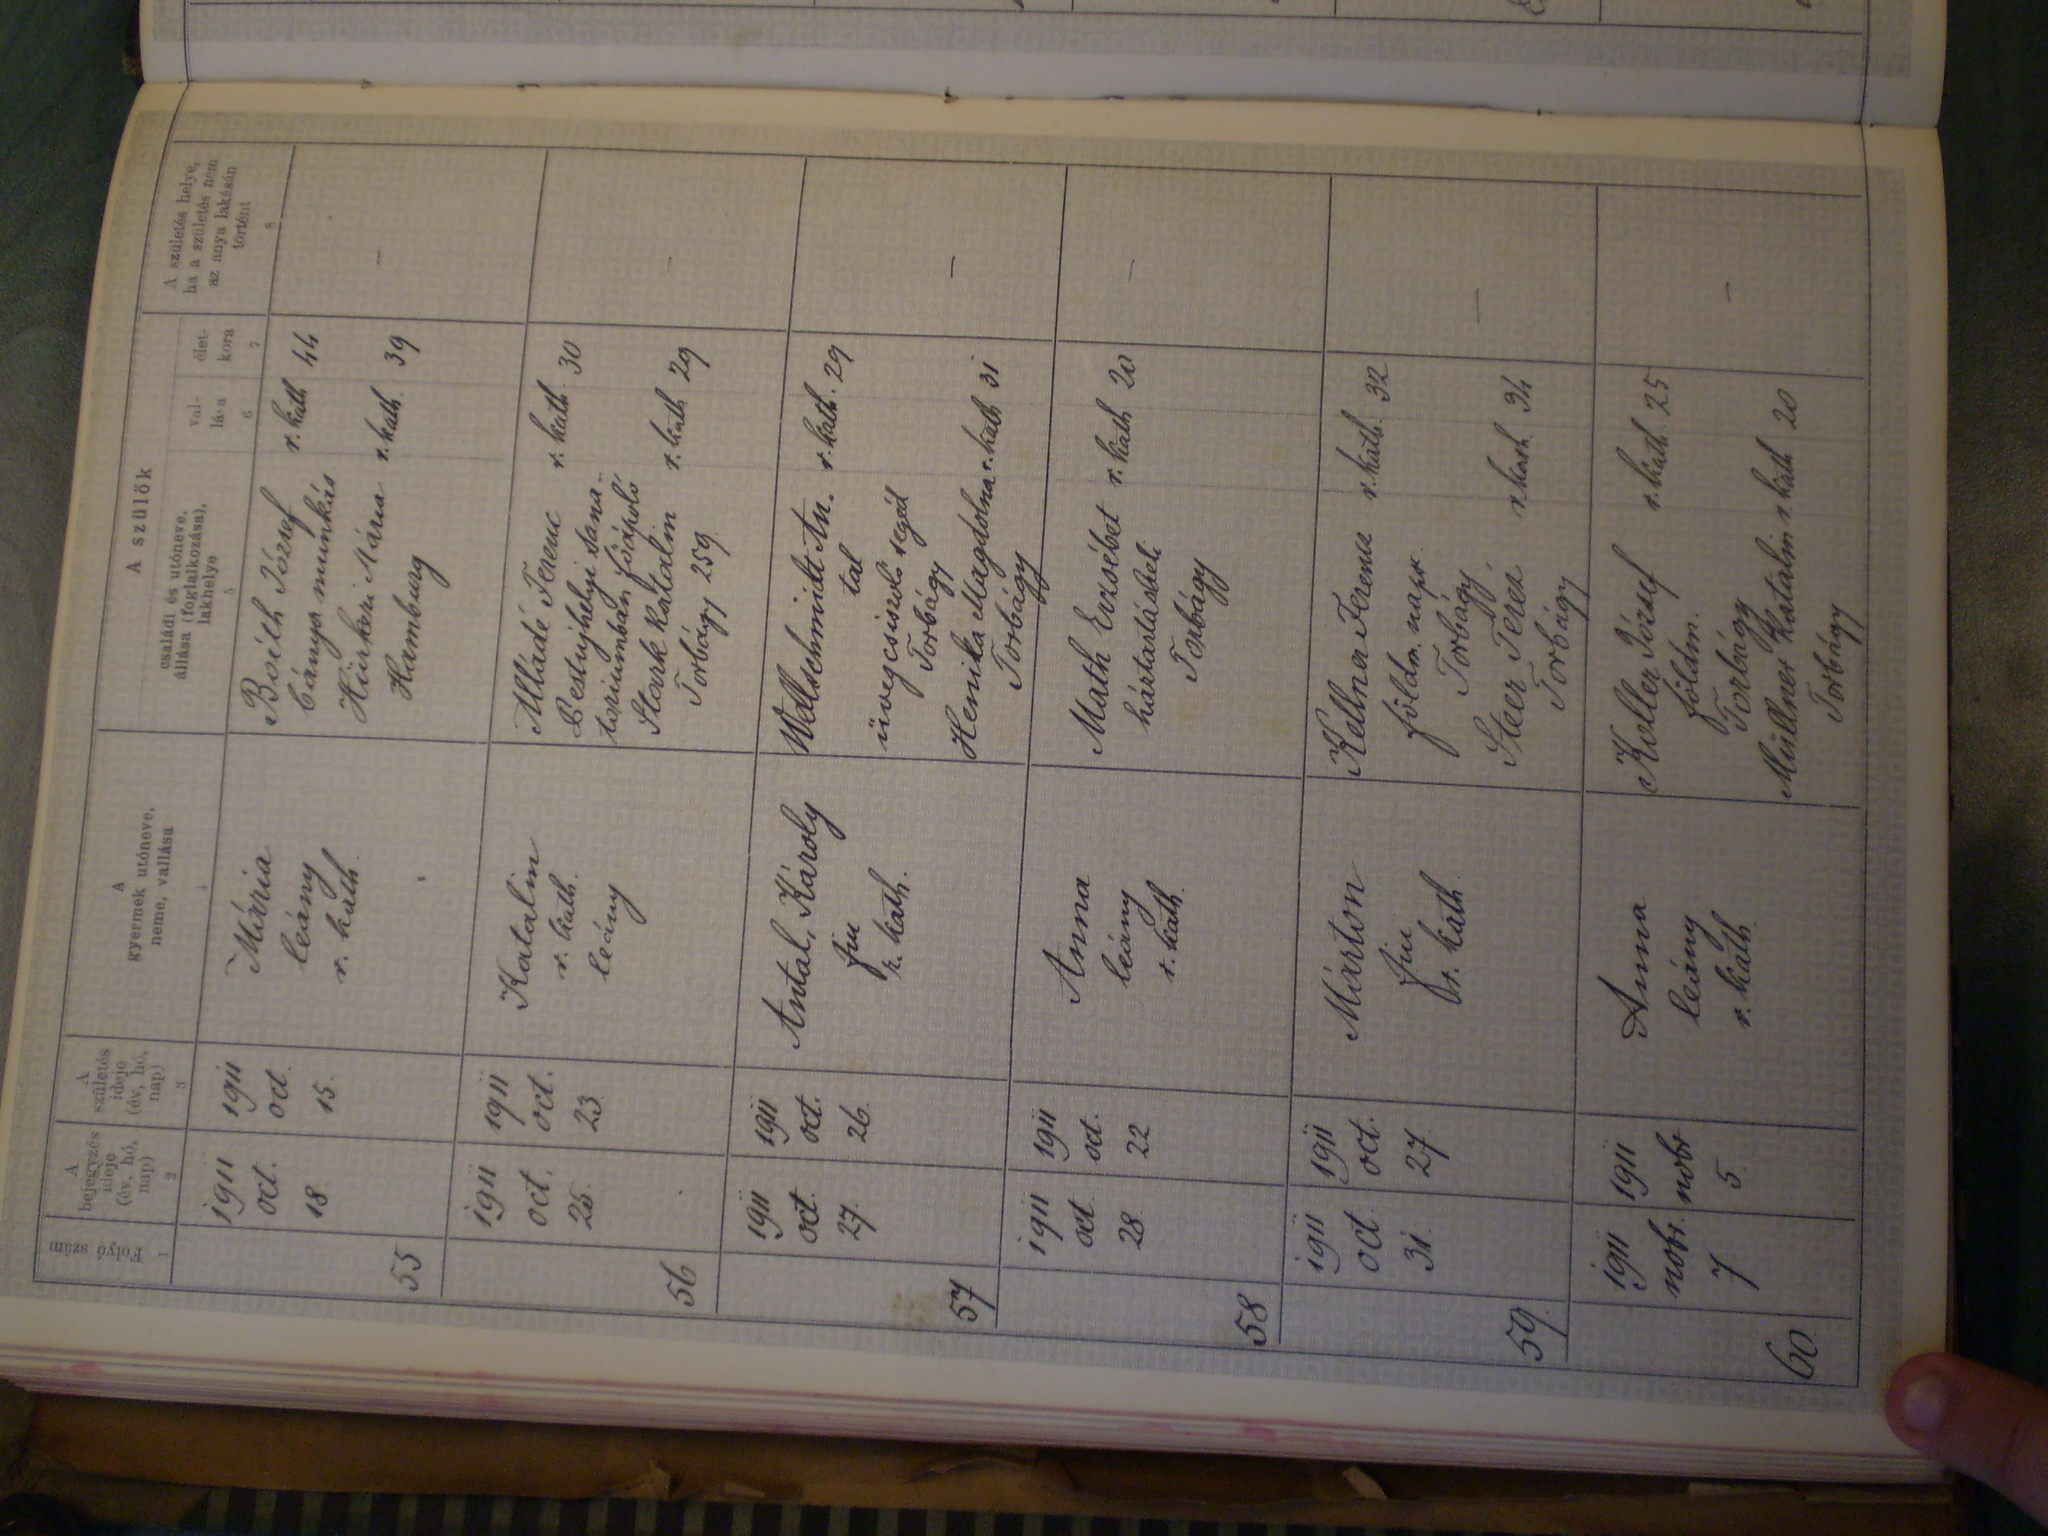 Folyó szám
1
A
bejegyzés
ideje
(év, hó,
nap)
2
A
születés
ideje
(év, hó,
nap)
3
A
gyermek utóneve,
neme, vallása
4
A szülők
családi és utóneve,
állása (foglalkozása),
lakhelye
5
val-
lása
6
élet-
kora
7
A születés helye,
ha a születés nem
az anya lakásán
történt
8
55
1911
oct.
18
1911
oct.
15.
Mária
leány
r. kath.
Bóéth József r. kath 44
bánya munkás
Mária r. kath. 39
Hamburg
–
56
1911
oct.
25.
1911
oct.
23
Katalin
r. kath.
leány
Alládé Ferenc r. kath 30
Pestujhelyi sana-
toriumban főápoló
Stark Katalin r. kath 29
Torbágy 259.
–
57
1911
oct.
27.
1911
oct.
26
Antal, Károly
fiu
r. kath.
Wellschmidt An. r. kath. 29
tal
üvegcsiszoló segéd
Torbágy
Henika Magdolna r. kath 31
Torbágy
–
58
1911
oct
28
1911
oct.
22
Anna
leány
r. kath
Math Erzsébet r. kath 20
háztartásbeli
Torbágy
–
59.
1911
oct
31
1911
oct.
27
Márton
fiu
r. kath
Kellner Ferenc r. kath. 32
földm. naps.
Torbágy,
Staer Teréz r. kath. 34
Torbágy
–
60.
1911
nobr.
7
1911
nobr
5
Anna
leány
r. kath
Koller József r. kath 25
földm.
Torbágy
Müllner Katalin r. kath 20
Torbágy
–